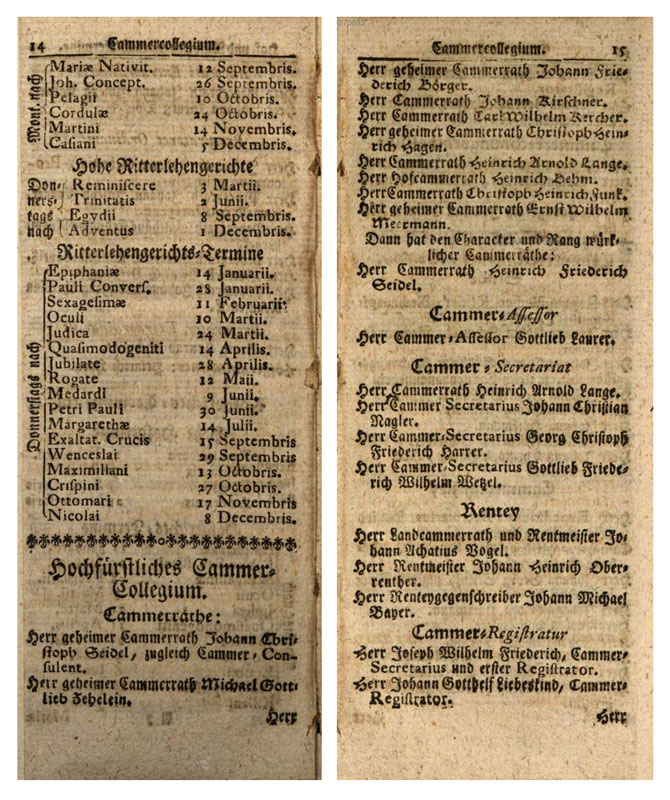 14 Cammercollegium.
Mont. nach
Mariæ Nativit. 12 Septembris.
Joh. Concept. 26 Septembris.
Pelagii 10 Octobris.
Cordulæ 24 Octobris.
Martini 14 Novembris.
Casiani 5 Decembris.
Hohe Ritterlehengerichte
Don- Reminiscere 3 Martii.
ners- Trinitatis 2 Junii.
tags Egydii 8 Septembris.
nach Adventus 1 Decembris.
Ritterlehengerichts-Termine
Donnerstags nach
Epiphaniæ 14 Januarii.
Pauli Convers. 28 Januarii.
Sexagesimæ 11 Februarii.
Oculi 10 Martii.
Judica 24 Martii.
Quasimodogeniti 14 Aprilis.
Jubilate 28 Aprilis.
Rogate 12 Maii.
Medardi 9 Junii.
Petri Pauli 30 Junii.
Margarethæ 14 Julii.
Exaltat. Crucis 15 Septembris
Wenceslai 29 Septembris
Maximiliani 13 Octobris.
Crispini 27 Octobris.
Ottomari 17 Novembris
Nicolai 8 Decembris.
Hochfürstliches Cammer-
Collegium.
Cammerräthe:
Herr geheimer Cammerrath Johann Chri-
stoph Seidel, zugleich Cammer-Con-
sulent.
Herr geheimer Cammerrath Michael Gott-
lieb Zehelein.
Herr
Cammercollegium. 15
Herr geheimer Cammerrath Johann Frie-
derich Börger.
Herr Cammerrath Johann Kirschner.
Herr Cammerrath Carl Wilhelm Kercher.
Herr geheimer Cammerrath Christoph Hein-
rich Hagen.
Herr Cammerrath Heinrich Arnold Lange.
Herr Hofcammerrath Heinrich Oehm.
Herr Cammerrath Christoph Heinrich Funk.
Herr geheimer Cammerrath Ernst Wilhelm
Meermann.
Dann hat den Character und Rang würk-
licher Cammerräthe:
Herr Cammerrath Heinrich Friederich
Seidel.
Cammer-Assessor
Herr Cammer-Assessor Gottlieb Laurer.
Cammer-Secretariat
Herr Cammerrath Heinrich Arnold Lange.
Herr Cammer Secretarius Johann Christian
Nagler.
Herr Cammer-Secretarius Georg Christoph
Friederich Harrer.
Herr Cammer-Secretarius Gottlieb Friede-
rich Wilhelm Wetzel.
Rentey
Herr Landcammerrath und Rentmeister Jo-
hann Achatius Vogel.
Herr Rentmeister Johann Heinrich Ober-
renther.
Herr Renteygegenschreiber Johann Michael
Bayer.
Cammer-Registratur
Herr Joseph Wilhelm Friederich, Cammer-
Secretarius und erster Registrator.
Herr Johann Gotthelf Liebeskind, Cammer-
Registrator.
Herr